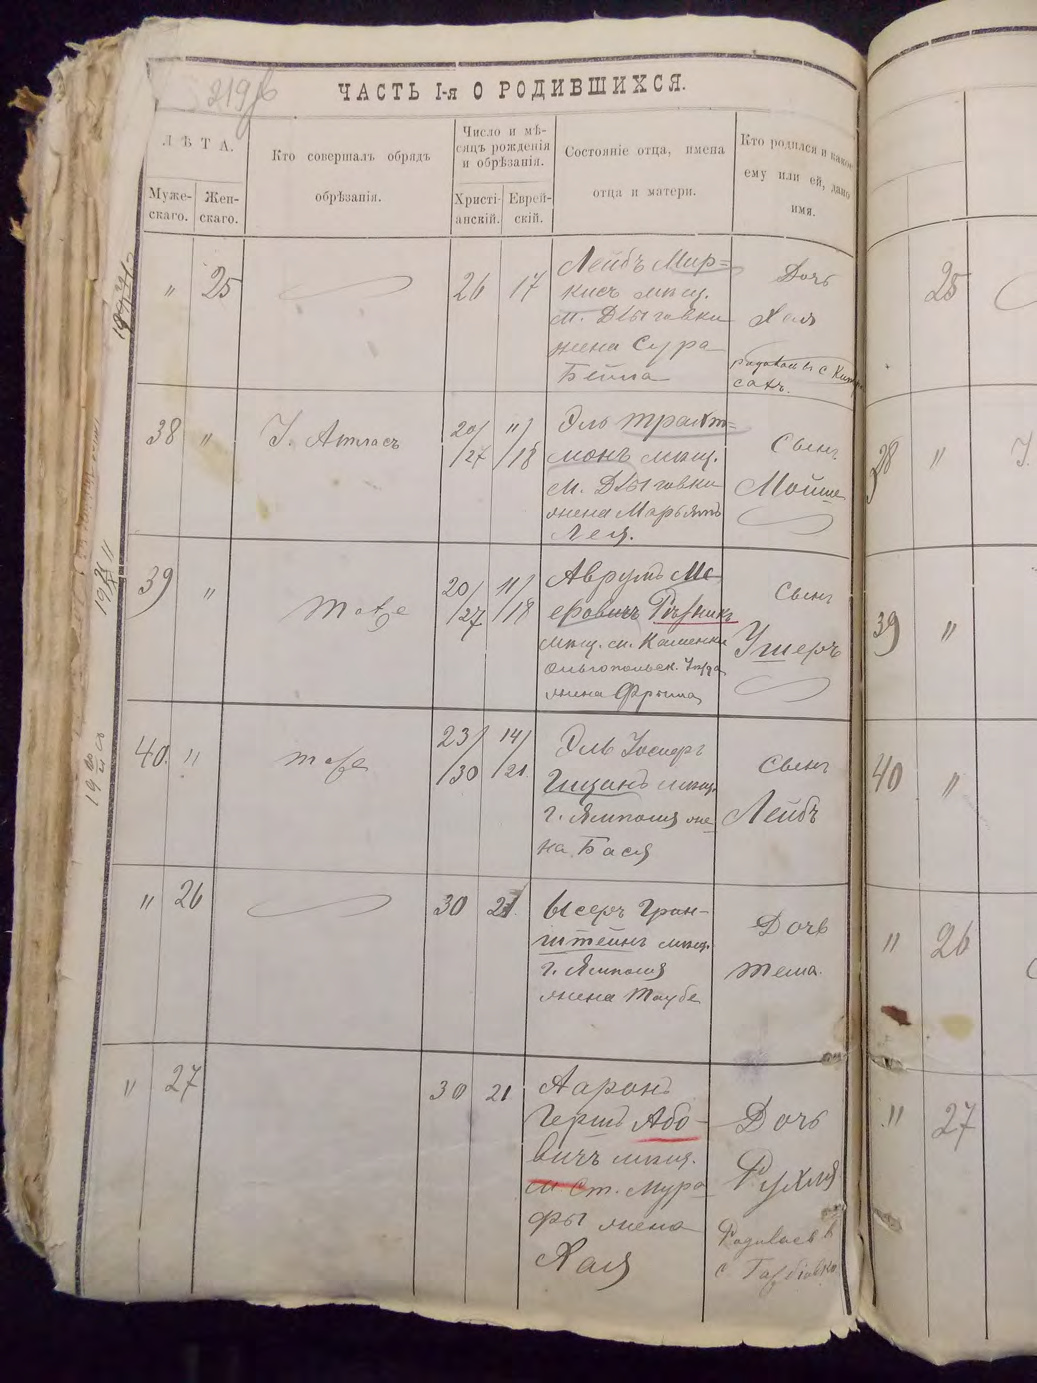 219 об
ЧАСТЬ I-я О РОДИВШИХСЯ.
ЛѢТА.
Муже-
скаго.
Жен-
скаго.
Кто совершалъ обрядъ
обрѣзанія.
Число и мѣ-
сяцъ рожденія
и обрѣзанія.
Христі-
анскій.
Еврей-
скій.
Состояніе отца, имена
отца и матери.
Кто родился и какое
ему или ей, дано
имя.
" 25 26 17
Лейбъ Мир-
кисъ мѣщ.
м. Дзыговки
жена Сура
Бейла
Дочь
Хая
38 " І. Атласъ 20/27 11/18
Эль Тракт-
монъ мѣщ.
м. Дзыговки
жена Марьямъ
Лея.
Сынъ
Мойше
39 " Тоже 20/27 11/18
Аврумъ Ме-
еровичъ Рѣзникъ
мѣщ. м. Каменки
Ольгопольск. уѣзда
жена Фрыма
Сынъ
Ушеръ
40. " Тоже 23/30 14/21.
Эль Іосифъ
мѣщ.
г. Ямполя же-
на Бася
Сынъ
Лейбъ
" 26 30 21
Ысеръ Грин-
штейнъ мѣщ.
г. Ямполя
жена Таубе
Дочь
Тема.
" 27 30 21
Ааронъ
Гершъ Або-
вичъ мѣщ.
м Ст. Мура
фы жена
Хая
Дочь
Рухля
Родилась в
с.
25
38 "
39 "
40 "
" 26
" 27